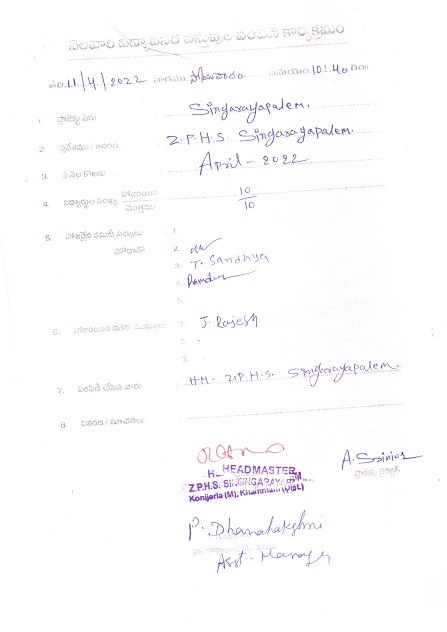 నెలవారి విద్యావసర వస్తువుల పంపిణీ కార్యక్రమం
తేది 11/4/2022 వారము సోమవారం సమయం 10:40 గం.
1. ప్రాజెక్టు పేరు Singarayapalem.
2. ప్రదేశము / Z.P.H.S. Singarayapalem.
3. ఏ నెల కొఱకు April - 2022
4. విద్యార్థుల సంఖ్య హాజరయిన 10
మొత్తము 10
5. హాజరైన కమిటీ సభ్యులు : 1.
2.
3. T. Sandhya
4.
5.
6. హాజరయిన ఇతర ముఖ్యులు : 1. J. Rajesh
2.
3.
7. పంపిణీ చేసిన వారు H.M. Z.P.H.S. Singarayapalem.
8. వివరణ / సూచనలు
HEADMASTER
Z.P.H.S. SINGARAYAPALEM
Konijerla (M), Khammam (Dist.)
P. Dhanalakshmi
Asst - Manager